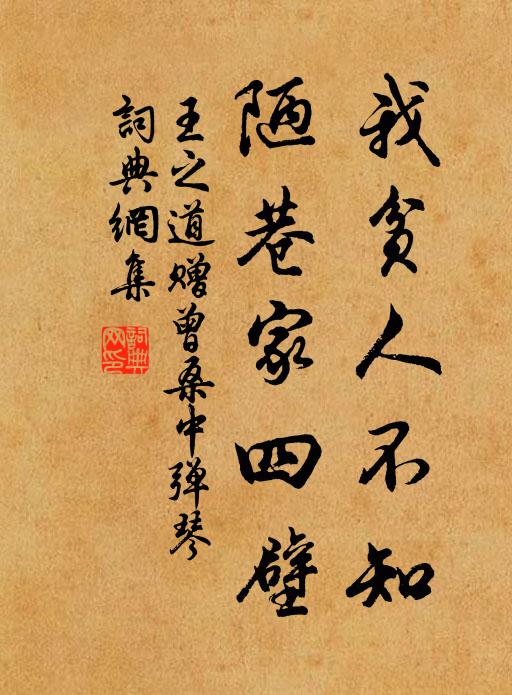 我貧人不知
陋巷家四壁
王之道赠曾桑中弹琴
詞典網集
詞典
网印